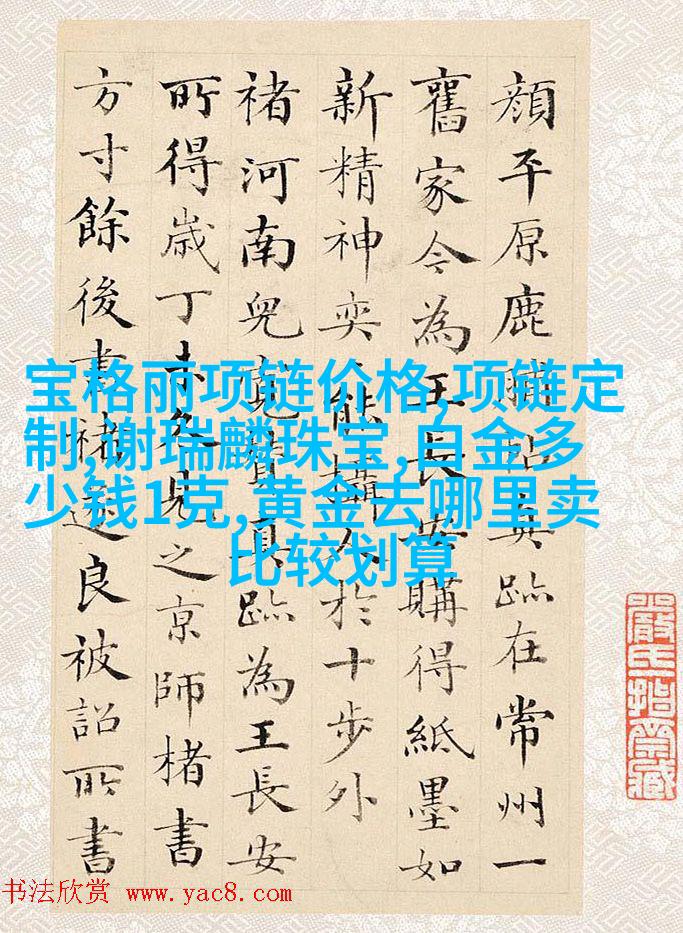 顔平原鹿脯帖真跡在常州一
舊家今為王長安購得紙墨如
新精神奕能攝人於十步外
褚河南兒寬贊真跡為王長安
所得歲丁未冬見之京師楮書
方寸餘後書褚遂良被詔所書
宝格丽项链价格,项链定
制,谢瑞麟珠宝,白金多
少钱1克,黄金去哪里卖
比较划算
书法欣赏 www.yac8.com